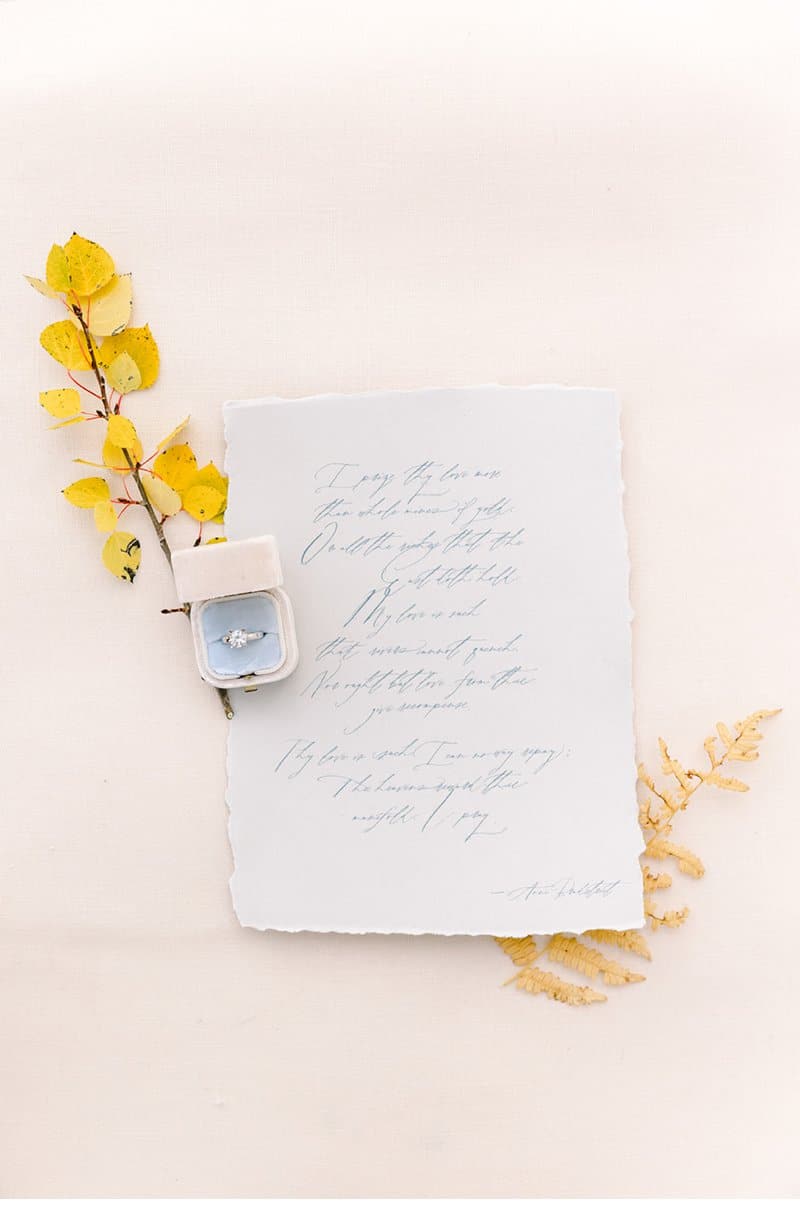 I prize thy love more
than whole mines of gold.
Or all the riches that the
East doth hold.
My love is such
that rivers cannot quench,
Nor ought but love from thee
give recompense.
Thy love is such I can no way repay;
The heavens reward thee
manifold, I pray.
— Anne Bradstreet